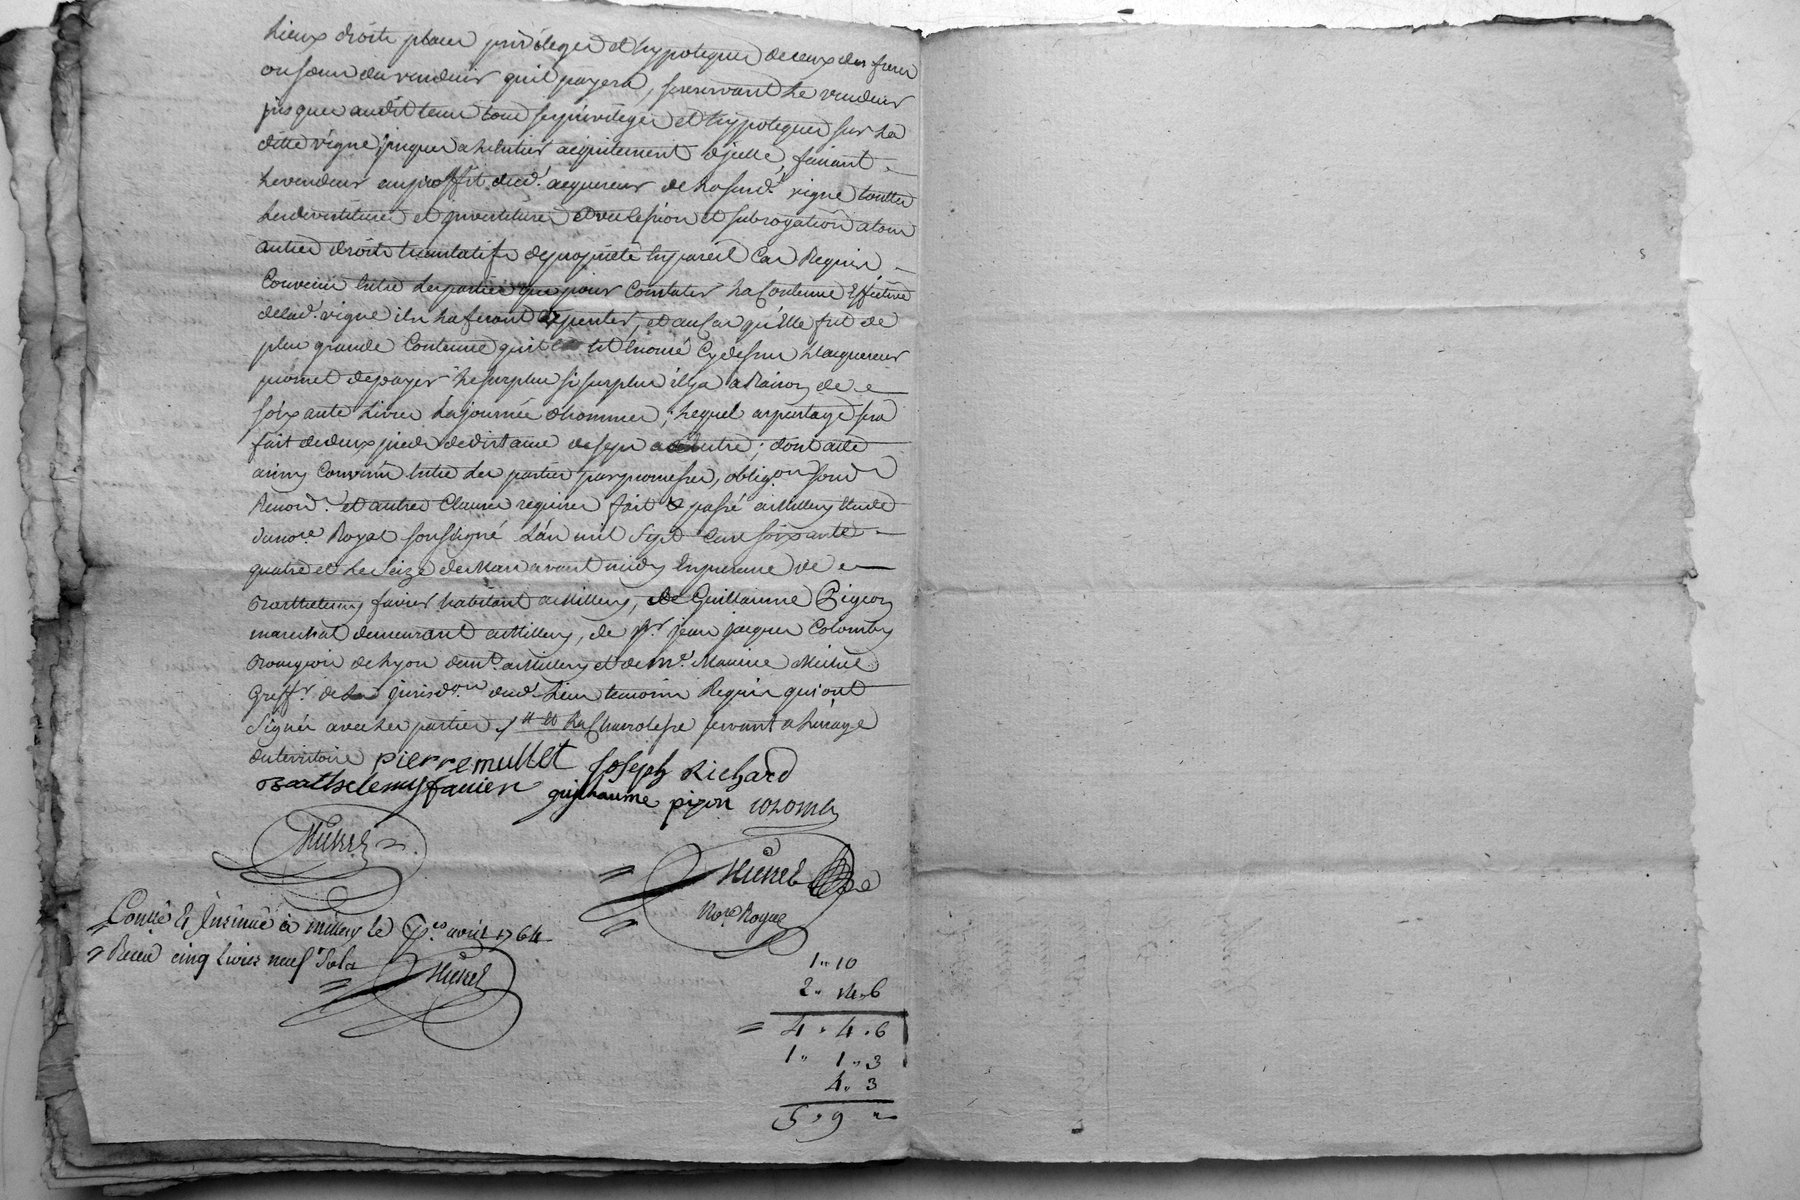 Lieux droits places privileges et hypoteques de ceux des freres
ou sœurs du vendeur qu'il payera, se reservant le vendeur
jusques audit tems tous ses privileges et hypoteques sur la
ditte vigne jusques a l'entier acquitement d'jcelle, faisant
le vendeur au proffit dud. acquereur de la susd. vigne touttes
les devestitures et jnvestitures et subrogation a tous
autres droits translatifs de propriété en pareil cas Requis
Convenu entre les parties que pour constater la contenue Effective
de lad. vigne ils la feront arpenter, et au cas qu'elle fut de
plus grande contenue qu'il est enoncé cy dessus l'acquereur
promet de payer le surplus si surplus il y a a Raison de
soixante livres la journée d'hommes, lequel arpentage sera
fait de deux pieds de distance de seps a autre; dont acte
ainsy convenu entre les parties par promesses, obligon. soum.
Renon. et autres clauses requises fait & passé a Millery Etude
du nore. Royal soussigné L'an mil sept cent soixante
quatre et le seize de Mars avant midy en presence de
Barthelemy favier habitant a Millery, de Guillaume Pigeon
marechal demeurant a Millery, de sr. jean jacques Colomby
Bourgeois de Lyon demt. a Millery et de Me. Maurice Michel
Greffr. de la jurisdon. dud. Lieu temoins Requis qui ont
Signés avec les parties
du territoire pierre mullet joseph Richard
Barthelemy favier guilhaume pigon colomby
Michel
Michel
Nore. Royal
Contlé Et Jnsinué à millery le avril 1764
Receu cinq Livres neuf Sols
Michel
1 " 10
2 " 14 " 6
4 " 4 " 6
1 " 1 " 3
4 " 3
5 " 9 "